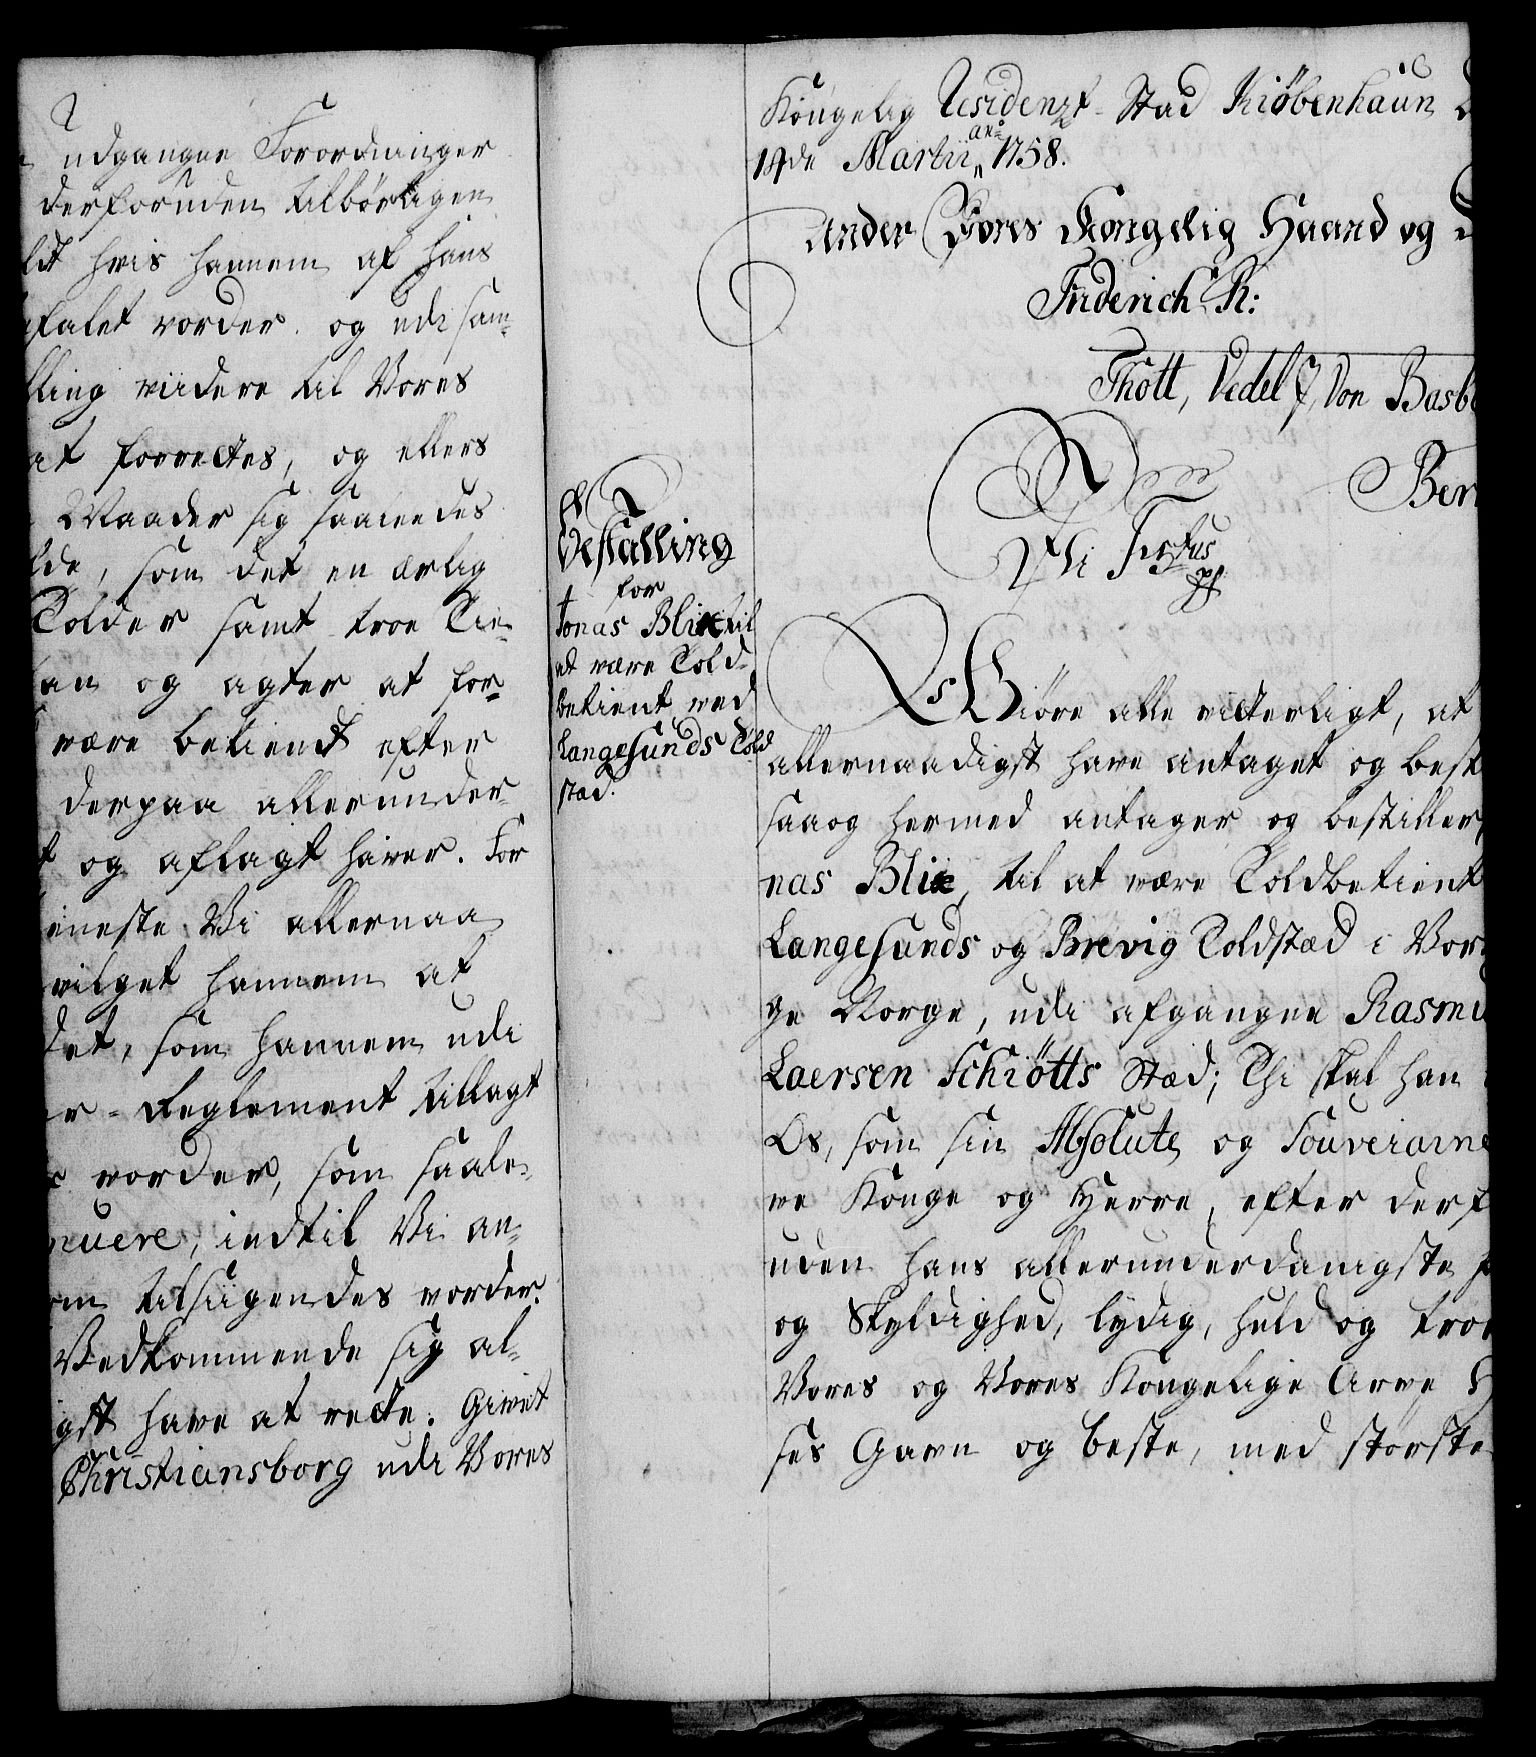 udgangne Forordninger
derforuden tilbørligen
hvis hannem af Hans
befalet vorder. og udi sam-
ling viidere til Vores
at forrettes, og ellers
Maader sig saaledes
som det en ærlig
Tolder samt troe Tie-
og agter at for-
være betient efter
derpaa allerunder-
og aflagt haver. For
Vi allernaa
vilget hannem at
som hannem udi
Reglement tillagt
vorder, som saale-
indtil Vi an-
tilsiigendes vorder.
Vedkommende sig al-
have at rette. Givet
Christiansborg udi Vores
Kongelig Residentz Stad Kiøbenhaun
14de Martii ao 1758.
Under Vores Kongelig Haand og
Friderich R:
Thott, Vedel J, Von Basb
Ber
Bestalling
for
Jonas Blix til
at være Told-
betient ved
Langesunds Told
stæd.
Giøre alle vitterligt, at
allernaadigst have antaget og best
saaog hermed antager og bestiller
nas Blix, til at være Toldbetient
Langesunds og Brevig Toldstæd i Vor
ge Norge, udi afgangne Rasmu
Laersen Schiøtts Stæd; Thi skal han
Os, som sin Absolute og Souveraine
ve Konge og Herre, efter derf
uden hans allerunderdanigste
og Skyldighed, lydig, huld og troe
Vores og Vores Kongelige Arve H
ses Gavn og beste, med største